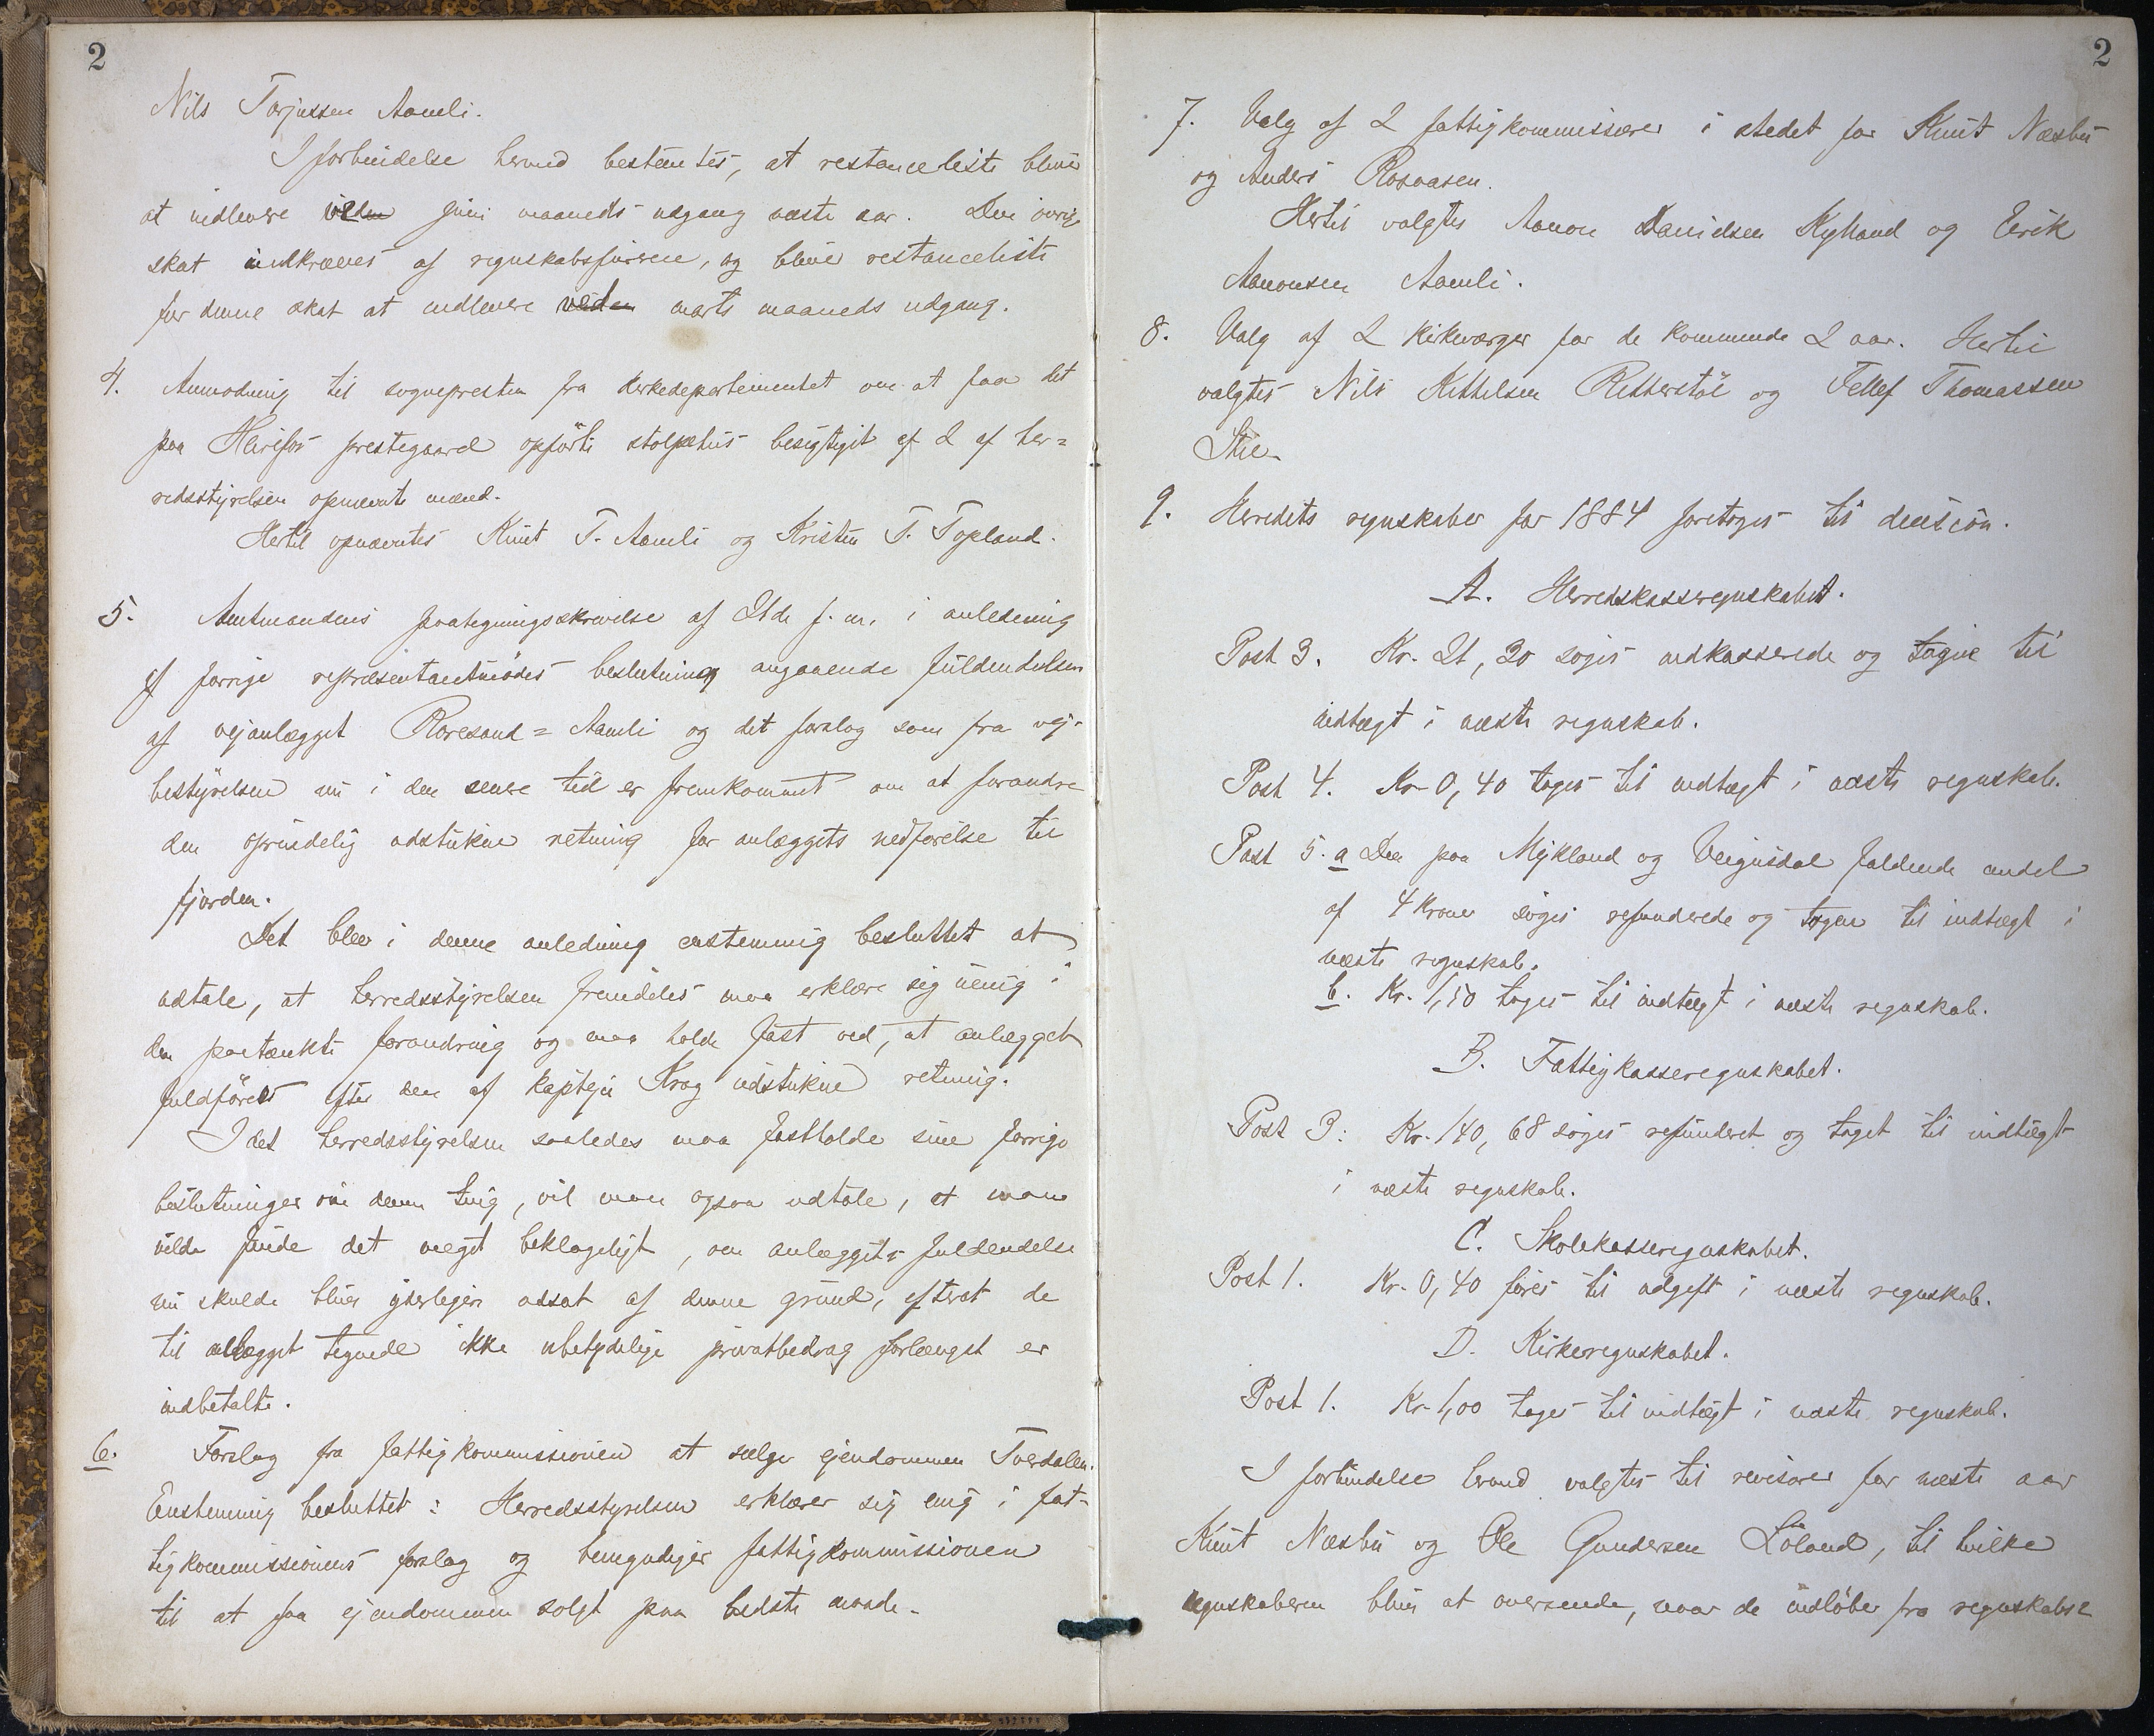 2
Nils Torjussen Aamli.
I forbindelse herved bestemtes, at restanceliste bliver
at indlevere inden juni maaneds udgang næste aar. Den øvrige
skat indkræves af regnskabsføreren, og bliver restanceliste
for denne skat at indlevere inden marts maaneds udgang.
4. Anmodning til sognepresten fra kirkedepartementet om at faa det
paa Herefos prestegaard opførte stolpehus besigtiget af 2 af her=
redsstyrelsen opnævnte mænd.
Hertil opnævntes Knut T. Aamli og Kristen T. Topland.
5. Amtmandens paategningsskrivelse af 21de f. m. i anledning
af forrige repræsentantmødes beslutning angaaende fuldendelsen
af vejanlægget Roresand=Aamli og det forslag som fra vej-
bestyrelsen nu i den senere tid er fremkommet om at forandre
den oprindelig udstukne retning for anlæggets nedførelse til
fjorden.
Det blev i denne anledning enstemmig besluttet at
udtale, at herredsstyrelsen fremdeles maa erklære sig uenig i
den paatænkte forandring og maa holde fast ved, at anlægget
fuldføres efter den af kaptejn Krag udstukne retning.
Idet herredsstyrelsen saaledes maa fastholde sine forrige
beslutninger om denne ting, vil man ogsaa udtale, at man
vilde finde det meget beklageligt, om anlæggets fuldendelse
nu skulde bliver yderligere udsat af denne grund, efterat de
til anlægget tegnede ikke ubetydelige privatbedrag forlængst er
indbetalte.
6. Forslag fra fattigkommissionen at sælge ejendommen Tverdalen.
Enstemmig besluttet: Herredsstyrelsen erklærer sig enig i fat-
tigkommissionens forslag og bemyndiger fattigkommissionen
til at faa ejendommen solgt paa bedste maade.
2
7. Valg af 2 fattigkommissærer i stedet for Knut Næsbu
og Anders Rosvasen.
Hertil valgtes Aanon Danielsen Kylland og Eerik
Aanonsen Aamli.
8. Valg af 2 kirkeværger for de kommende 2 aar. Hertil
valgtes Nils Kittelsen Retterstøl og Tellef Thomassen
Stie.
9. Herredets regnskaber for 1884 foretoges til decision.
A. Herredskasseregnskabet.
Post 3. Kr. 21,30 søges indkasserede og tagne til
indtægt i næste regnskab.
Post 4. Kr 0,40 tages til indtægt i næste regnskab.
Post 5. a Den paa Mykland og Vegusdal faldende andel
af 4 kroner søges refunderede og tagne til indtægt i
næste regnskab.
b. Kr. 1,50 tages til indtægt i næste regnskab.
B. Fattigkasseregnskabet.
Post 3: Kr. 140,68 søges refunderet og taget til indtægt
i næste regnskab.
C. Skolekasseregnskabet.
Post 1. Kr. 0,40 føres til udgift i næste regnskab.
D. Kirkeregnskabet.
Post 1. Kr 1,00 tages til indtægt i næste regnskab.
I forbindelse herved valgtes til revisorer for næste aar
Knut Næsbu og Ole Gundersen Løland, til hvilke
regnskaberne bliver at oversende, naar de indløber fra regnskabs=